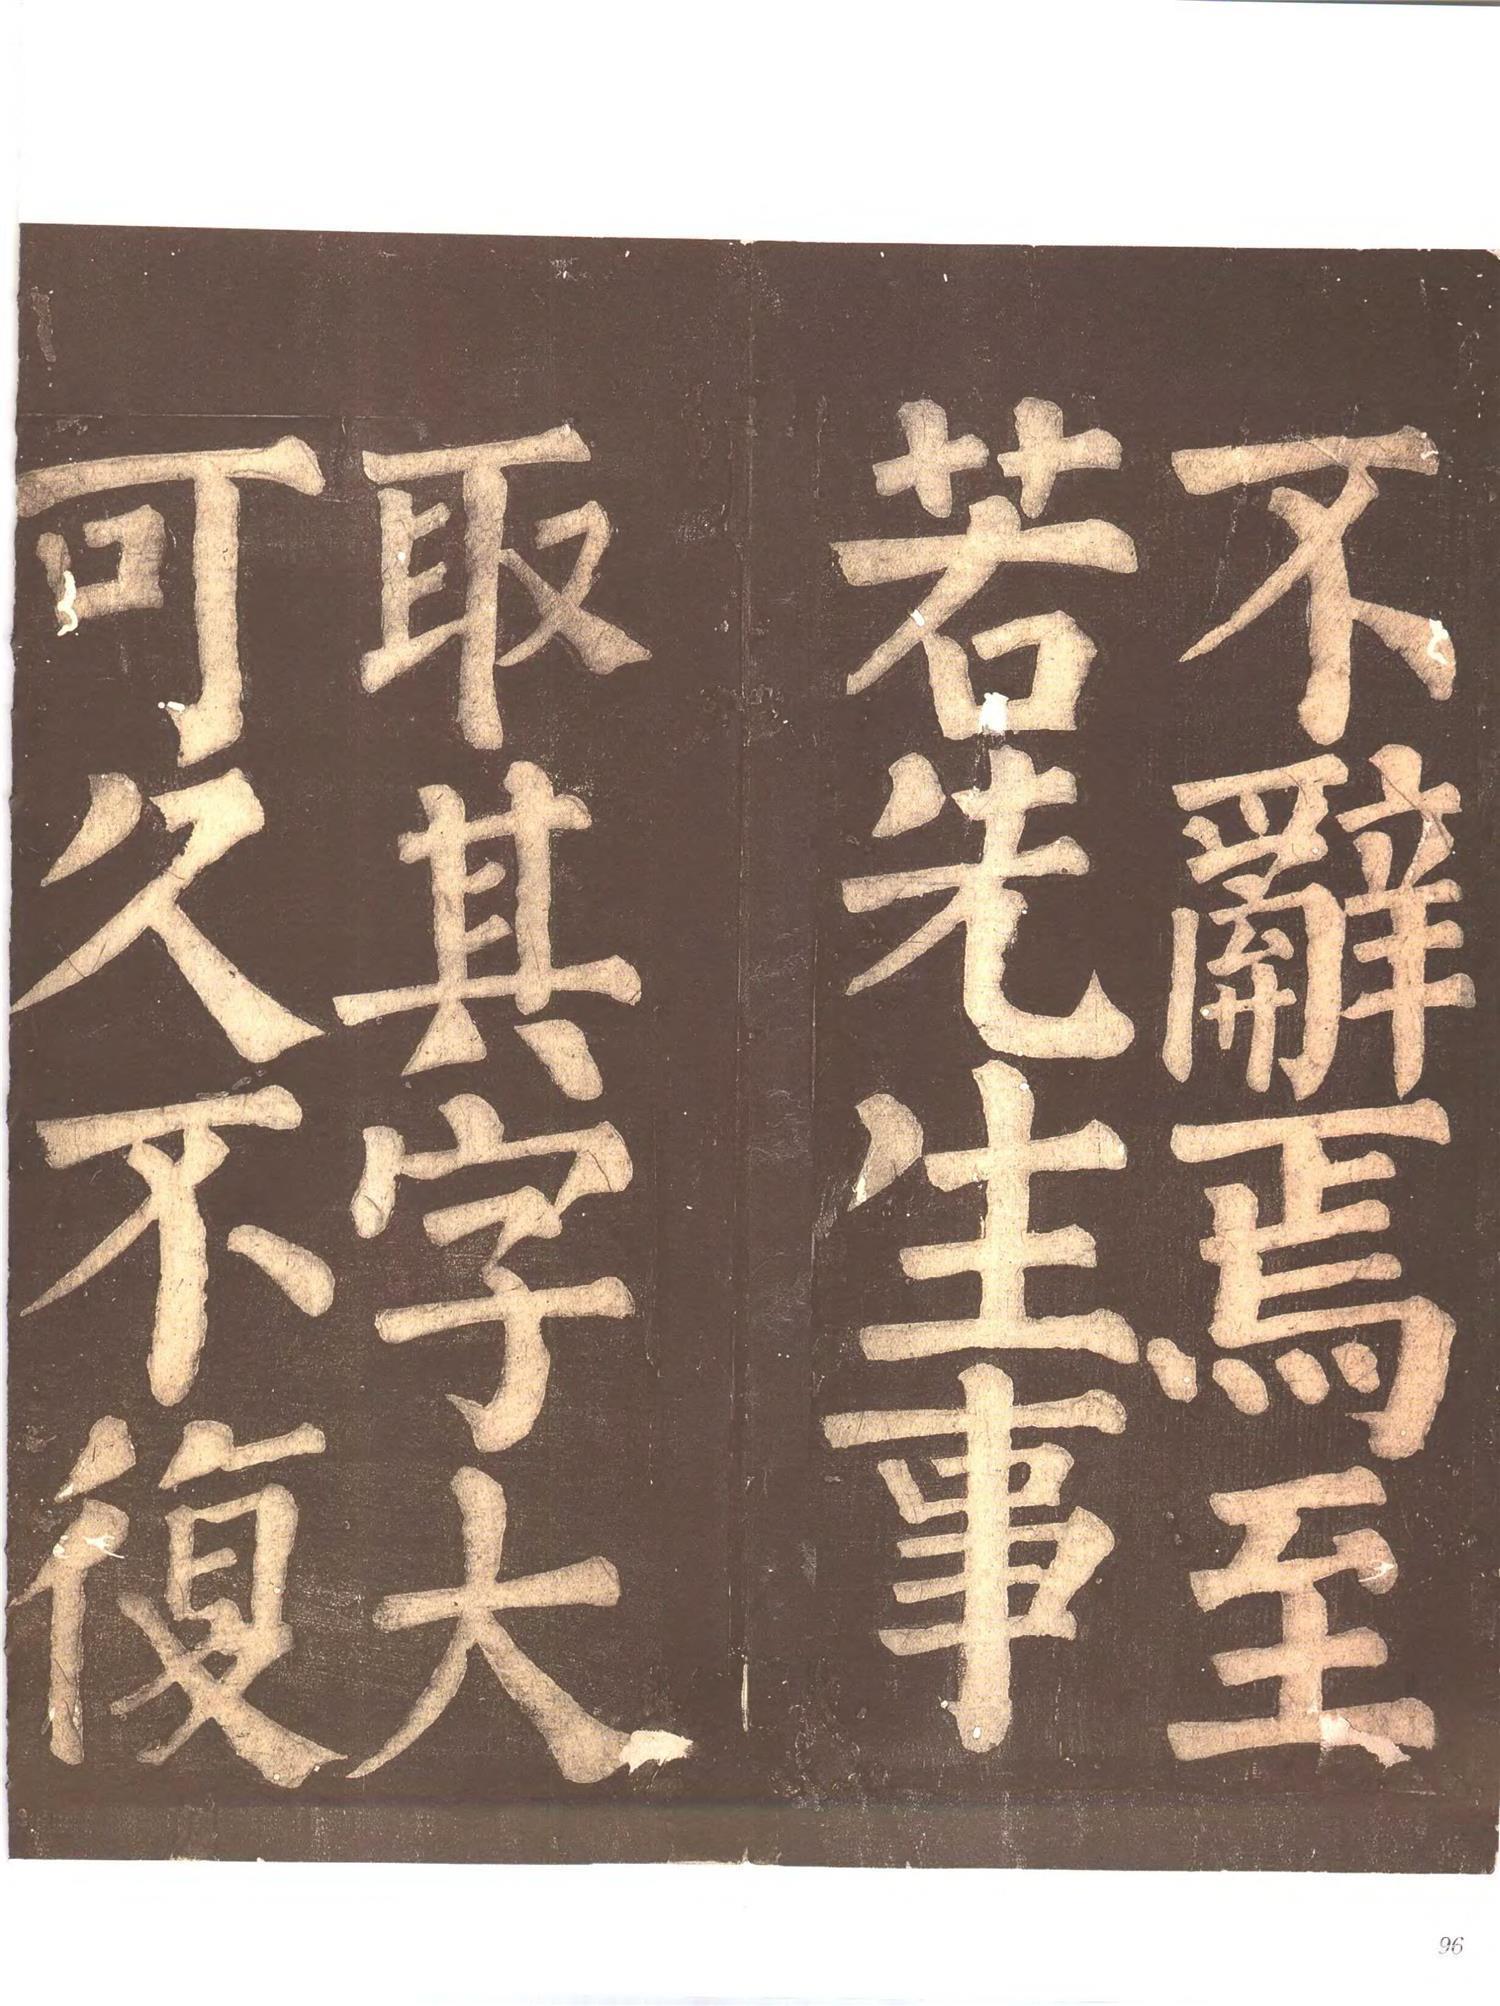 不辭焉至
若先生事
取其字大
可久不復
96